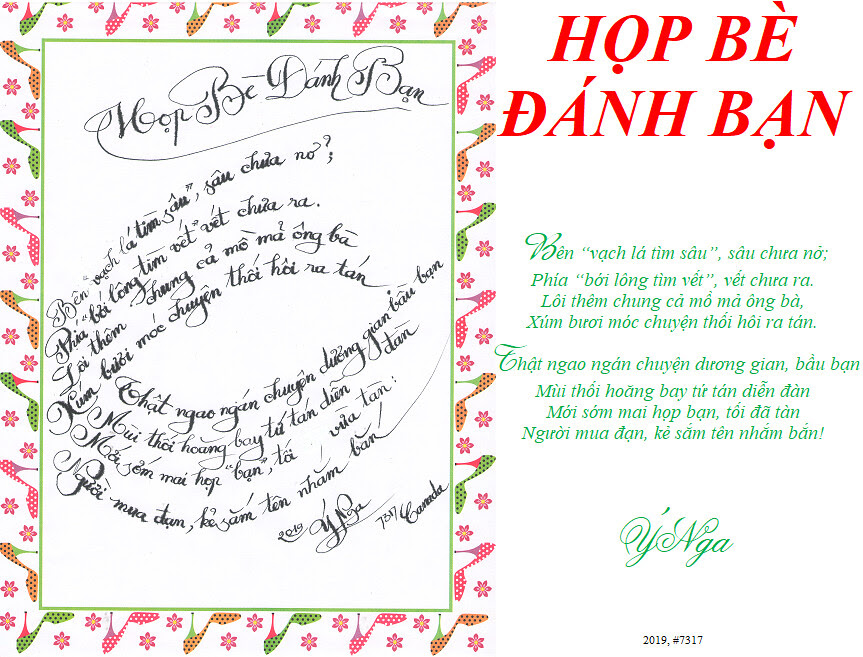 Họp Bè Đánh Bạn
Bên "vạch lá tìm sâu", sâu chưa nở;
Phía "bới lông tìm vết" vết chưa ra.
Lôi thêm chung cả mồ mả ông bà
Xúm bươi móc chuyện thối hôi ra tán
Thật ngao ngán chuyện dương gian bầu bạn
Mùi thối hoăng bay tứ tán diễn đàn
Mới sớm mai họp "bạn", tối vừa tàn:
Người mua đạn, kẻ sắm tên nhắm bắn!
2019 Ý Nga 7317 Canada
HỌP BÈ
ĐÁNH BẠN
Bên “vạch lá tìm sâu”, sâu chưa nở;
Phía “bới lông tìm vết”, vết chưa ra.
Lôi thêm chung cả mồ mả ông bà,
Xúm bươi móc chuyện thối hôi ra tán.
Thật ngao ngán chuyện dương gian, bầu bạn
Mùi thối hoăng bay tứ tán diễn đàn
Mới sớm mai họp bạn, tối đã tàn
Người mua đạn, kẻ sắm tên nhắm bắn!
Ý Nga
2019, #7317